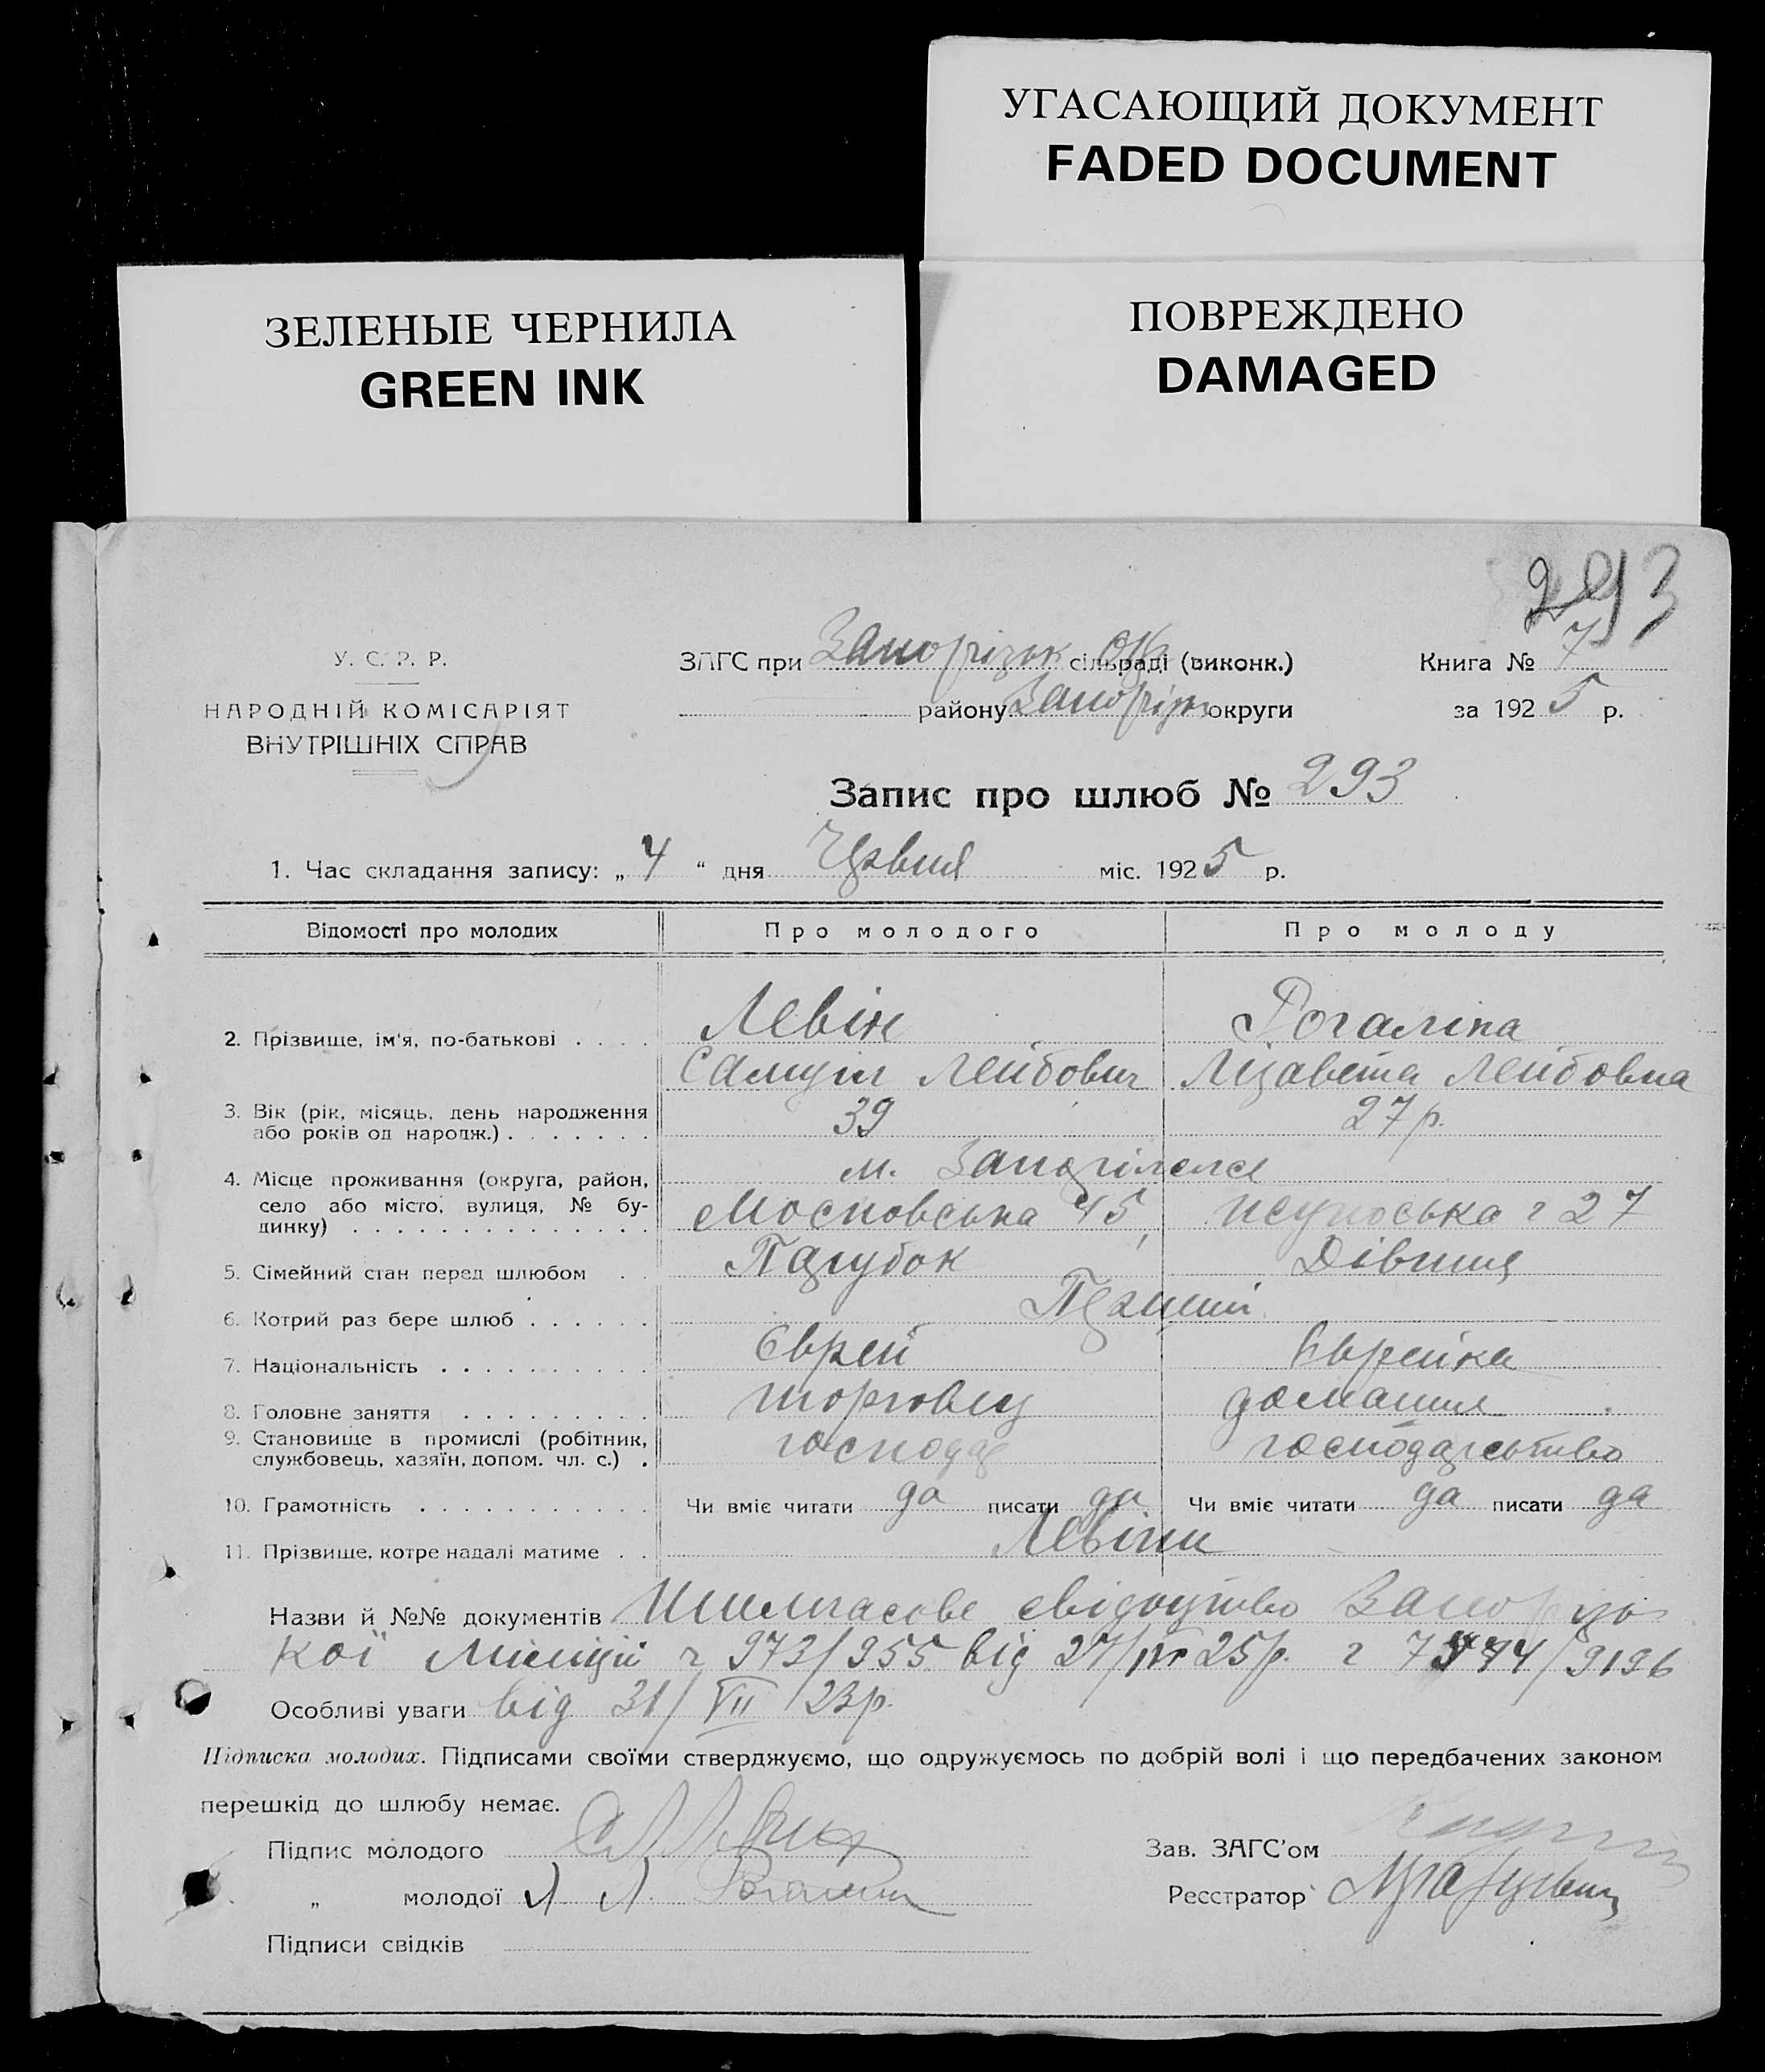 УГАСАЮЩИЙ ДОКУМЕНТ
FADED DOCUMENT
ЗЕЛЕНЫЕ ЧЕРНИЛА
GREEN INK
ПОВРЕЖДЕНО
DAMAGED
293
У. С. Р. Р.
НАРОДНІЙ КОМІСАРІЯТ
ВНУТРІШНІХ СПРАВ
ЗАГС при Запорізьк сільраді (виконк.)
району Запоріз округи
Книга № 7
за 1925 р.
Запис про шлюб № 293
1. Час складання запису: „ 4 “ дня Червня міс. 1925 р.
Відомості про молодих Про молодого Про молоду
2. Прізвище, ім'я, по-батькові . . . . Левін Рогаліна
Самуіл Лейбович Лізавета Лейбовна
3. Вік (рік, місяць, день народження або років од народж.) . . . . . . . 39 27 р.
4. Місце проживання (округа, район, село або місто, вулиця, № будинку) . . . . . . . . . . . . . м. Запоріжжя
Московська 45, 27
5. Сімейний стан перед шлюбом . . Парубок Дівиця
6. Котрий раз бере шлюб . . . . . . Перший
7. Національність . . . . . . . . . Єврей Єврейка
8. Головне заняття . . . . . . . . . торговец домашнє
9. Становище в промислі (робітник, службовець, хазяїн, допом. чл. с.) . господар господарство
10. Грамотність . . . . . . . . . . . Чи вміє читати да писати да Чи вміє читати да писати да
11. Прізвище, котре надалі матиме . . Левіни
Назви й №№ документів свідоцтво Запорізь
кої Міліції ч 973/955 від 27/IV 25р. /9196
Особливі уваги від 31/VII 23р.
Підписка молодих. Підписами своїми стверджуємо, що одружуємось по добрій волі і що передбачених законом
перешкід до шлюбу немає.
Підпис молодого
Зав. ЗАГС'ом
„ молодої Л Л. Рогалин
Реєстратор
Підписи свідків